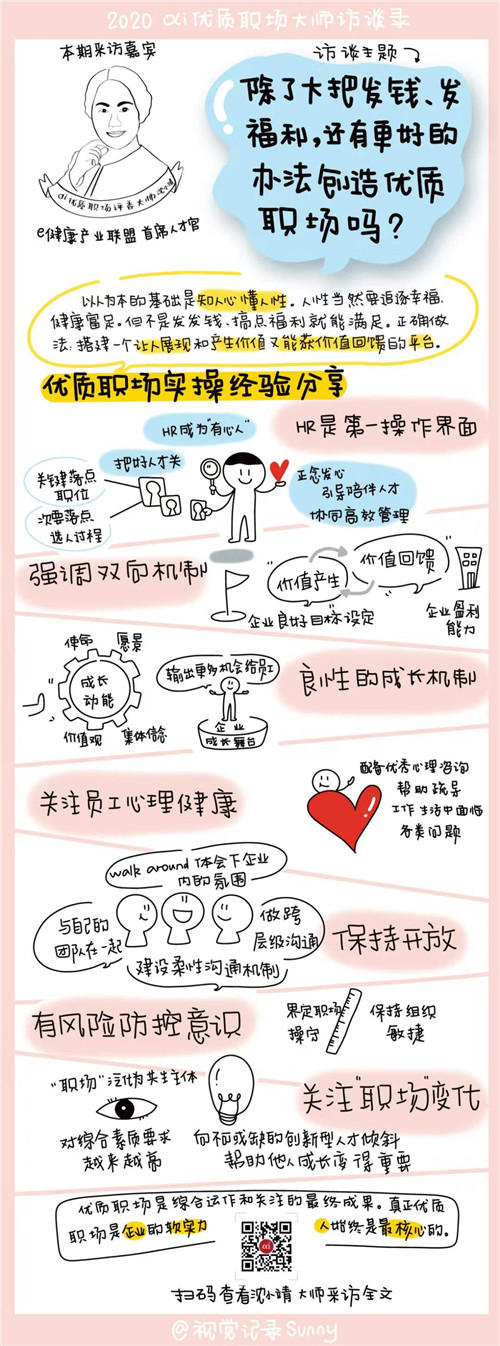 2020 αi优质职场大师访谈录
本期采访嘉宾
αi优质职场评委大师沈小靖
e健康产业联盟 首席人才官
访谈主题
除了大把发钱、发
福利,还有更好的
办法创造优质
职场吗?
以人为本的基础是知人心懂人性。人性当然要追逐幸福、
健康富足。但不是发发钱、搞点福利就能满足。正确做
法:搭建一个让人展现和产生价值又能获价值回馈的平台。
优质职场实操经验分享
HR是第一操作界面
HR成为“有心人”
把好人才关
关键落点
职位
次要落点
选人过程
正念发心
引导陪伴人才
协同高效管理
强调双向机制
价值产生
价值回馈
企业良好目标设定
企业盈利
能力
良性的成长机制
使命
愿景
成长
动能
价值观
集体信念
输出更多机会给员工
企业
成长舞台
关注员工心理健康
配备优秀心理咨询
帮助疏导
工作生活中面临
各类问题
保持开放
walk around 体会下企业
内的氛围
与自己的
团队在一起
做跨
层级沟通
建设柔性沟通机制
有风险防控意识
界定职场
操守
保持组织
敏捷
关注“职场”变化
“职场”泛化为共生主体
对综合素质要求
越来越高
向不可或缺的创新型人才倾斜
帮助他人成长变得重要
优质职场是综合运作和关注的最终成果。真正优质
职场是企业的软实力
人始终是最核心的。
扫码查看沈小靖大师采访全文
@视觉记录Sunny